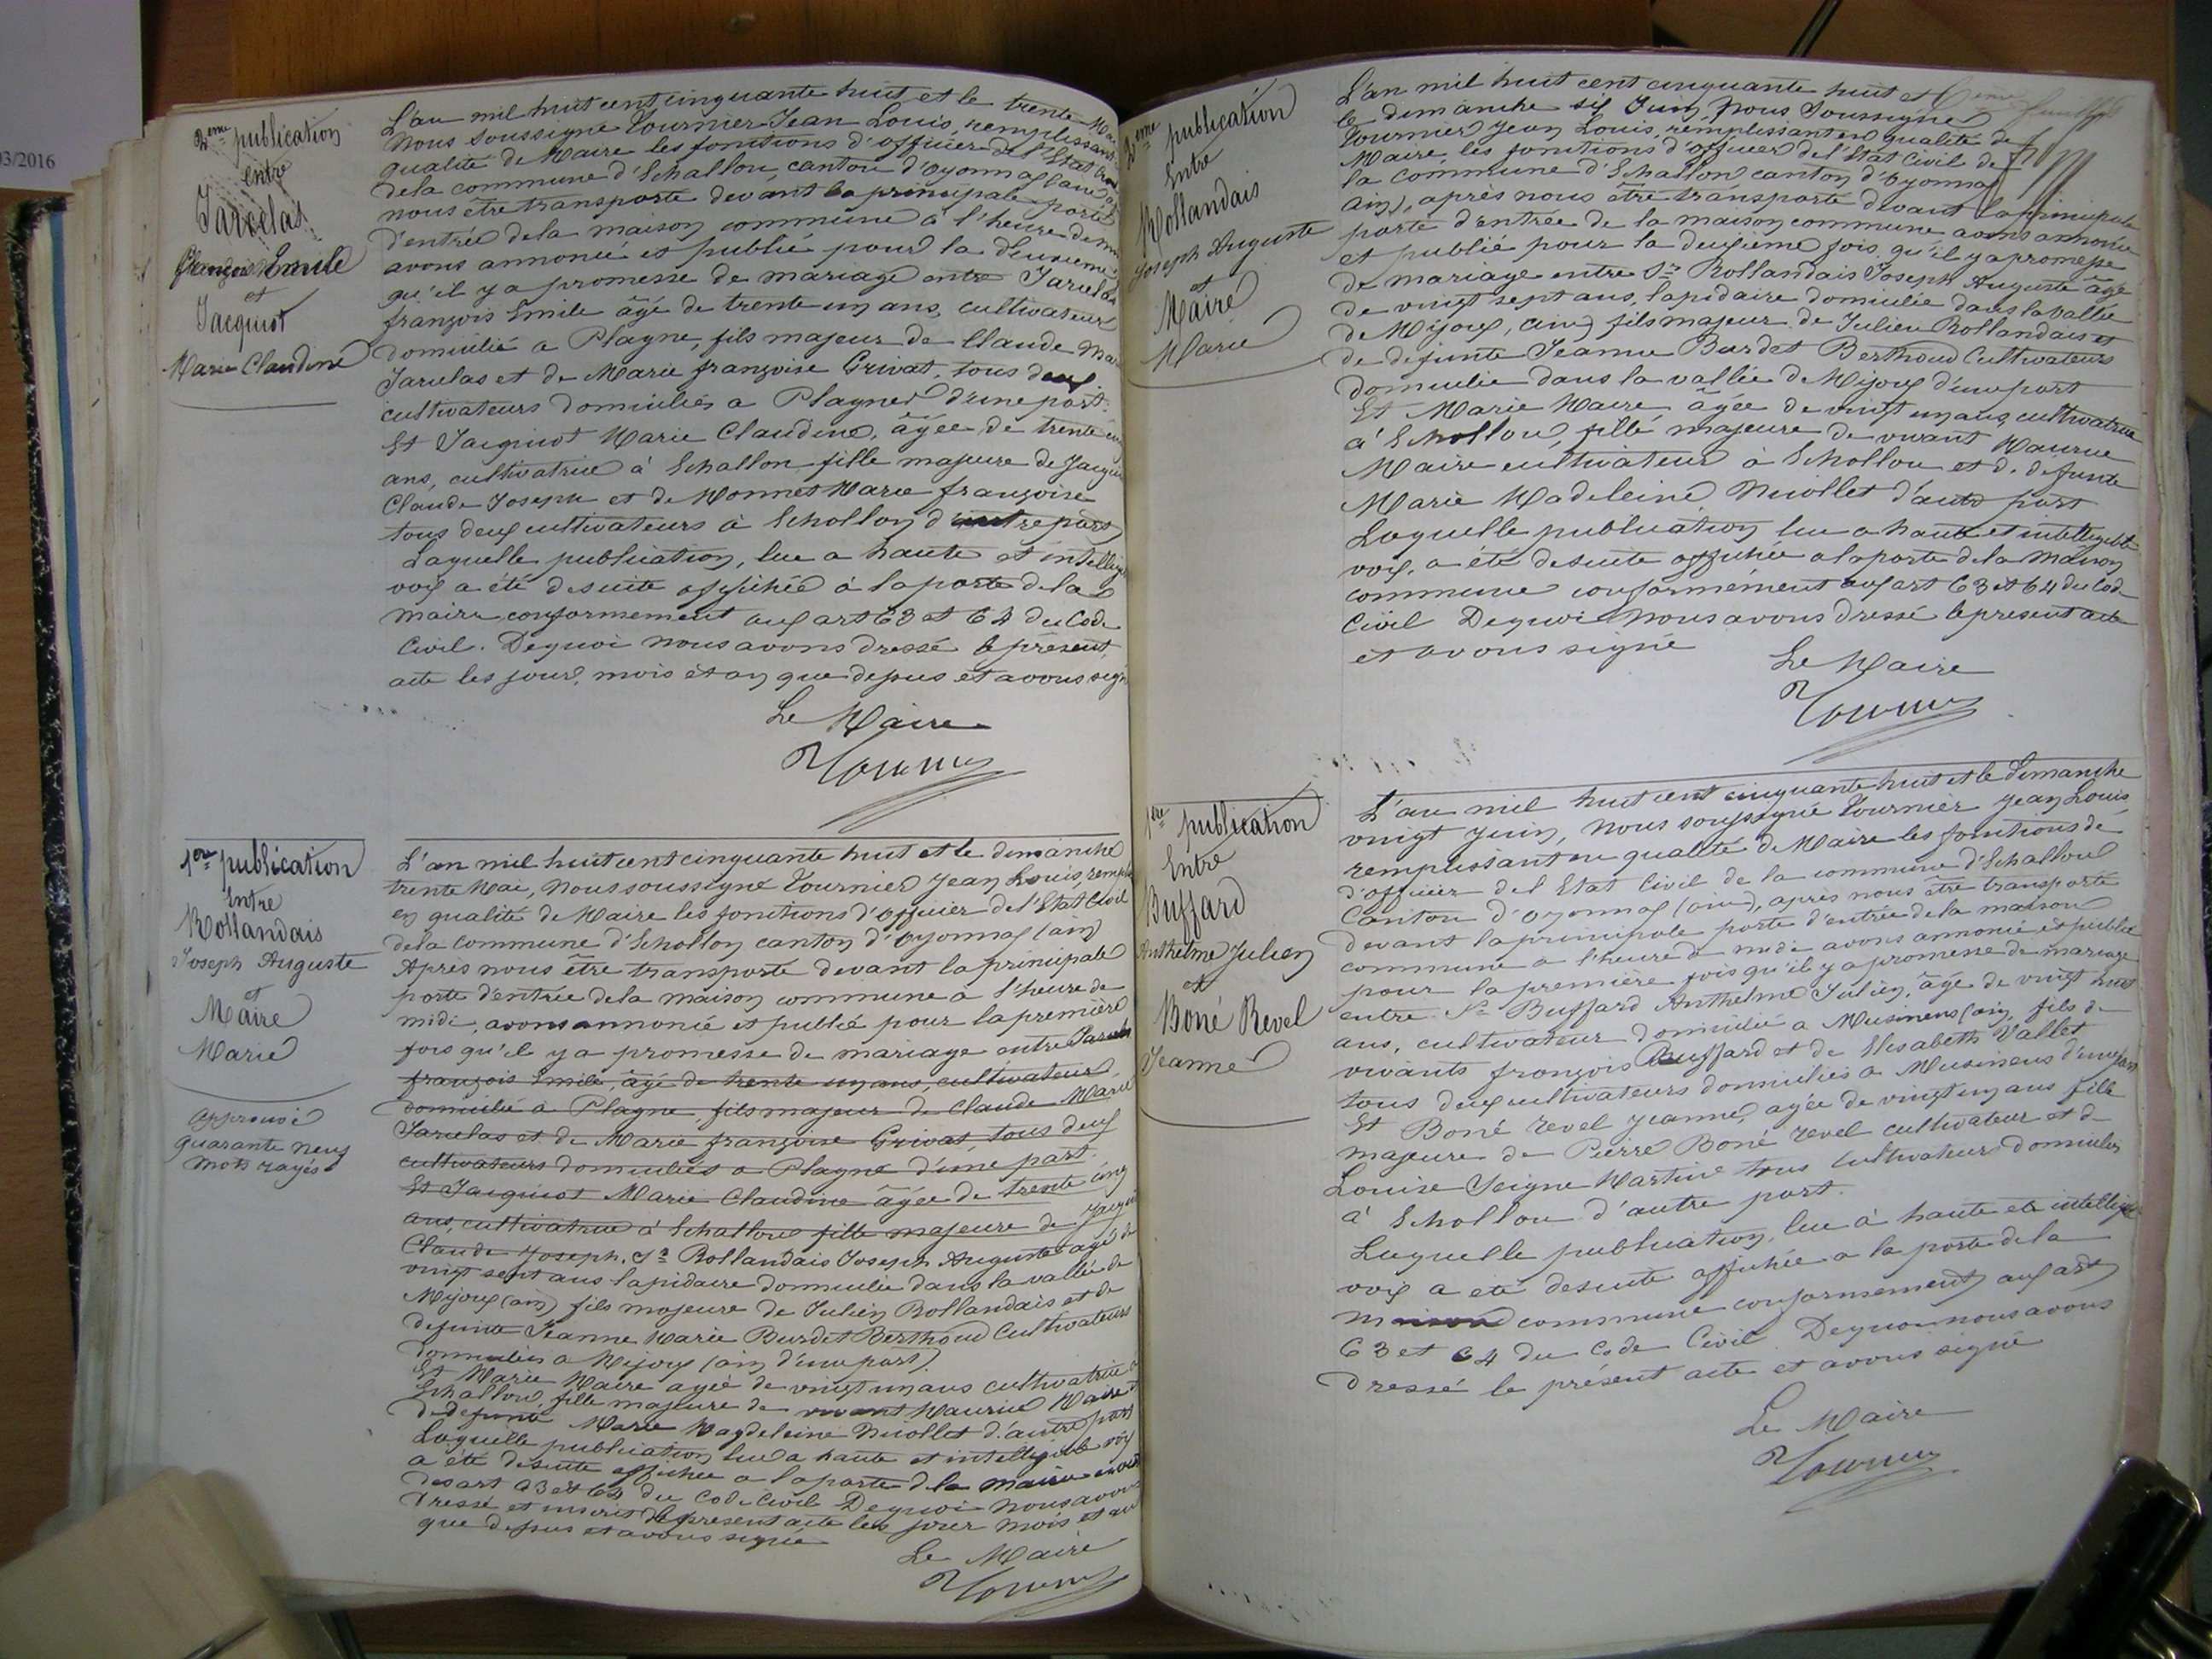 03/2016
2eme publication
entre
Jarcelas
François Emile
et
Jacquiot
Marie Claudine
L'an mil huit cent cinquante huit et le trente Mai
Nous soussigné Tournier Jean Louis, remplissant
qualité de Maire les fonctions d'officier de l'Etat Civil
dela commune d'Echallon, canton d'oyonnax
nous être transporté devant la principale porte
d'entrée dela maison commune à l'heure de
avons annoncé et publié pour la deuxième
qu'il y a promesse de mariage entre Jarcelas
françois Emile âgé de trente un ans, cultivateur
domicilié a Plagne, fils majeur de Claude Mar
Jarcelas et de Marie françoise Grivat, tous deux
cultivateurs domiciliés a Plagne d'une part.
Et Jacquiot Marie Claudine, âgée de trente cinq
ans, cultivatrice à Echallon fille majeure de Jacqui
Claude Joseph et de Monnet Marie françoise
tous deux cultivateurs à Echollon d'autre part
Laquelle publication, lue a haute et intellig
voix a été desuite affichée à la porte de la
maire conformement aux art 63 et 64 du Code
Civil. Dequoi nous avons dressé le présent,
acte les jour, mois et an que dessus et avons sign
Le Maire
Tournier
1ere publication
Entre
Rollandais
Joseph Auguste
et
Maire
Marie
approuvé
quarante neuf
mots rayés
L'an mil huit cent cinquante huit et le dimanche
trente Mai, nous soussigné Tournier Jean Louis, rempl
en qualité de Maire les fonctions d'officier de l'Etat Civil
dela commune d'Echollon canton d'oyonnax (ain)
Après nous être transporté devant la principale
porte d'entrée dela maison commune à l'heure de
midi, avons annoncé et publié pour la première
fois qu'il y a promesse de mariage entre Jarcelas
françois Emile, âgé de trente un ans, cultivateur
domicilié à Plagne, fils majeur de Claude Marie
Jarcelas et de Marie françoise Grivat, tous deux
cultivateurs domiciliés a Plagne d'une part.
Et Jacquiot Marie Claudine âgée de trente cinq
ans, cultivatrice à Echallon fille majeure de Jacqui
Claude Joseph. Sr Rollandais Joseph Auguste agé de
vingt sept ans lapidaire domicilié dans la vallée de
Mijoux (ain) fils majeure de Julien Rollandais et de
defunte Jeanne Marie Burdet Berthoud Cultivateurs
domiciliés a Mijoux (ain d'une part)
Et Marie Maire agée de vingt un ans cultivatrice à
Echallon, fille majeure de vivant Maurice Maire et
de defunte Marie Magdeleine Niollet d'autre part
Laquelle publication lue a haute et intelligible voix
a été desuite affichée a la porte de la mairie
des art 63 et 64 du Code Civil Dequoi nous avons
dressé et inscrit le présent acte les jour mois et an
que dessus et avons signé
Le Maire
Tournier
2eme publication
Entre
Rollandais
Joseph Auguste
et
Mairé
Marie
L'an mil huit cent cinquante huit et
le dimanche six Juin, Nous Soussigné
Tournier Jean Louis, remplissant en qualité de
Maire, les fonctions d'officier de l'Etat Civil de
la commune d'Echallon canton d'oyonnax
ain), après nous être transporté devant la principale
porte d'entrée de la maison commune avons annoncé
et publié pour la deuxième fois qu'il y a promesse
de mariage entre Sr Rollandais Joseph Auguste âgé
de vingt sept ans, lapidaire domicilié dans la vallée
de Mijoux, (ain) fils majeur de Julien Rollandais et
de defunte Jeanne Burdet Berthoud Cultivateurs
domicilié dans la vallée de Mijoux d'une part
Et Marie Maire, âgée de vingt un ans, cultivatrice
à Echollon, fille majeure de vivant Maurice
Maire cultivateur à Echollon et de defunte
Marie Madeleine Niollet d'autre part
Laquelle publication lue a haute et intelligible
voix, a été desuite affichée a la porte de la Maison
commune conformément aux art 63 et 64 du Code
Civil Dequoi Nous avons dressé le présent acte
et avons signé
Le Maire
Tournier
1ere publication
Entre
Buffard
Anthelme Julien
et
Boné Revel
Jeanne
L'an mil huit cent cinquante huit et le Dimanche
vingt Juin, nous soussigné Tournier Jean Louis
remplissant en qualité de Maire les fonctions de
d'officier del Etat Civil de la commune d'Echallon
Canton d'oyonnax (ain), après nous être transporté
devant la principale porte d'entrée de la maison
commune a l'heure de midi avons annoncé et publié
pour la première fois qu'il y a promesse de mariage
entre Sr Buffard Anthelme Julien, âgé de vingt huit
ans, cultivateur domicilié a Musinens (ain, fils de
vivants françois Buffard et de Elisabeth Vallet
tous deux cultivateurs domiciliés a Musinens d'une part
Et Boné revel Jeanne, agée de vingt un ans fille
majeure de Pierre Boné revel cultivateur et de
Louise Seigne Martin tous cultivateurs domiciliés
à Echollon d'autre part.
Laquelle publication, lue à haute et intelligible
voix a été desuite affichée a la porte de la
maison commune conformement aux art
63 et 64 du Code Civil Dequoi nous avons
dressé le présent acte et avons signé
Le Maire
Tournier